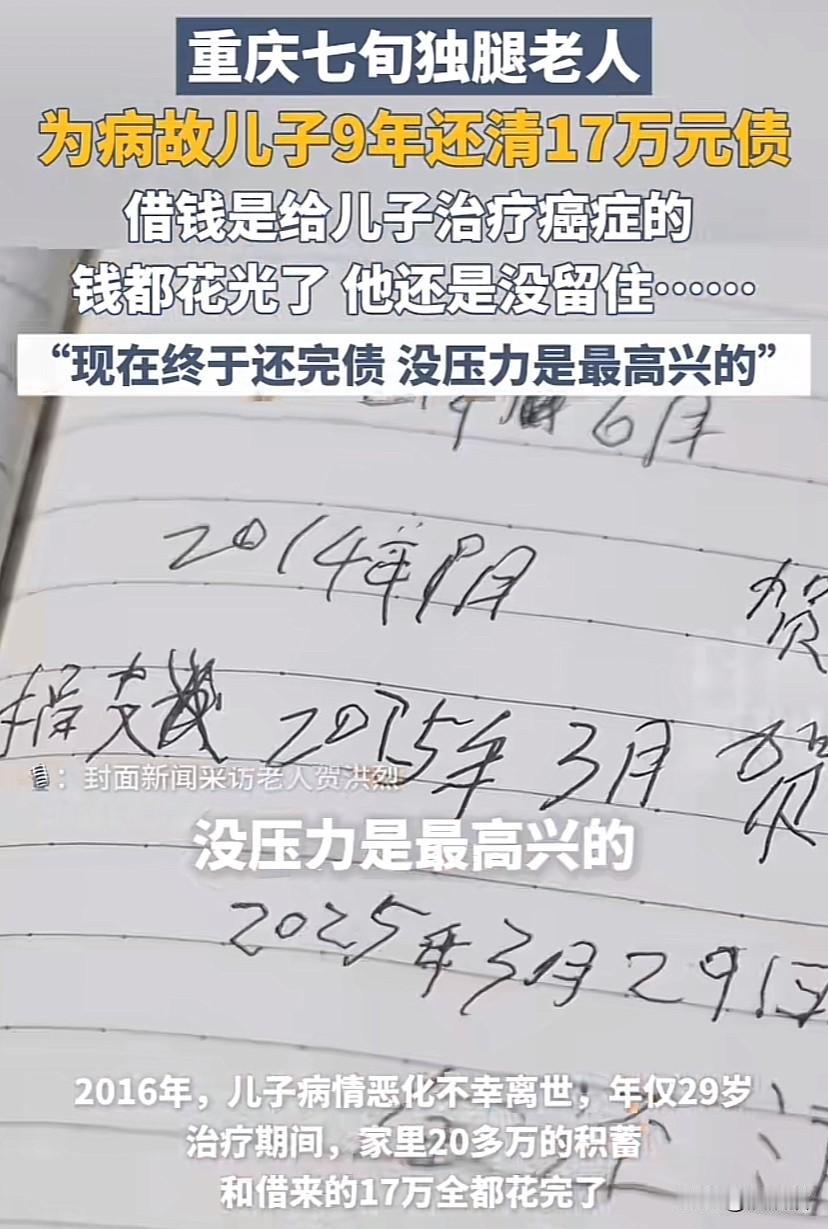 重庆七旬独腿老人
为病故儿子9年还清17万元债
借钱是给儿子治疗癌症的
钱都花光了 他还是没留住……
“现在终于还完债 没压力是最高兴的”
6月
2014年 月 贺
支 2015年3月 贺
：封面新闻采访老人贺洪烈
没压力是最高兴的
2025年3月29日
2016年，儿子病情恶化不幸离世，年仅29岁
治疗期间，家里20多万的积蓄
和借来的17万全都花完了